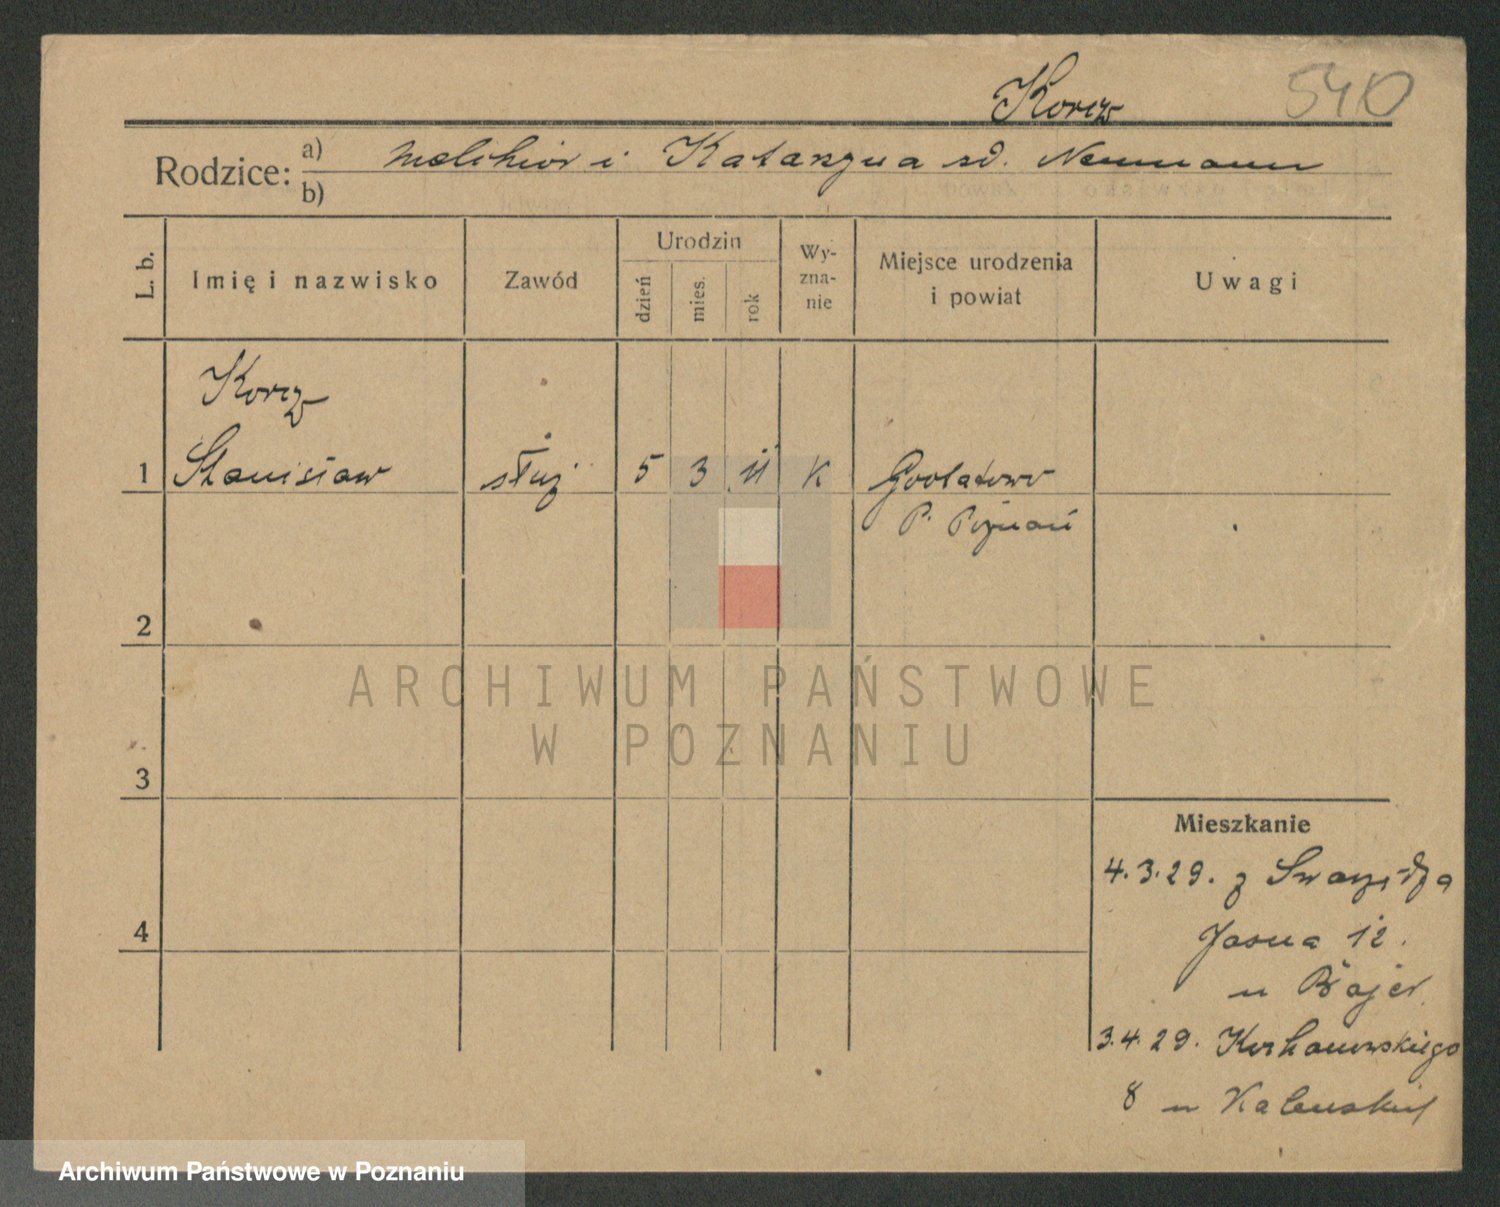 Korcz
540
Rodzice: a) Melchior i Katarzyna zd. Neumann
b)
L. b.
Imię i nazwisko
Zawód
Urodzin
dzień
mies.
rok
Wy-
zna-
nie
Miejsce urodzenia
i powiat
Uwagi
Korcz
1 Stanisław służ 5 3 11 K
P. Poznań
2
ARCHIWUM PAŃSTWOWE
W POZNANIU
3
Mieszkanie
4.3.29. z Swarzędza
4
Jasna 12.
u Bajer
3.4.29. Kochanowskiego
8 u
Archiwum Państwowe w Poznaniu